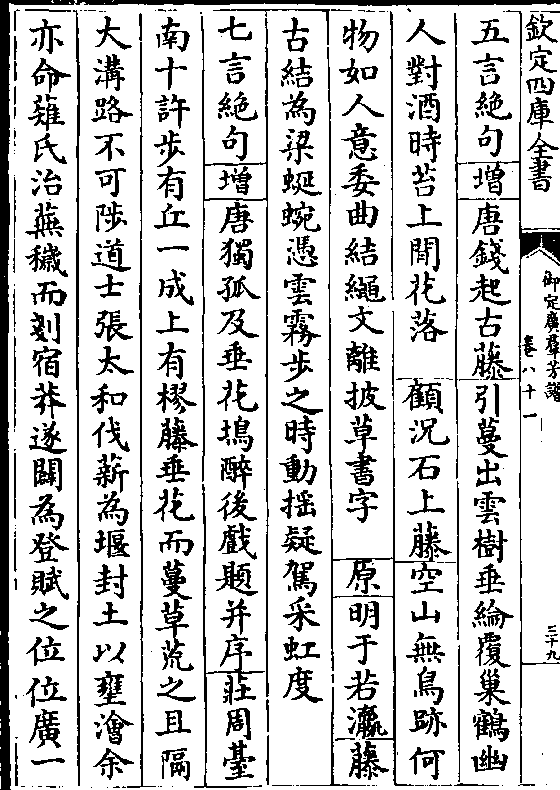 欽定四庫全書
御定廣羣芳譜
卷八十一
三十九
五言絶句增唐錢起古藤引蔓出雲樹垂綸覆巢鶴幽
人對酒時苔上閒花落 顧況石上藤空山無鳥跡何
物如人意委曲結繩文離披草書字 原明于若瀛藤
古結為梁蜒蜿憑雲霧步之時動揺疑駕采虹度
七言絶句增唐獨孤及垂花塢醉後戲題并序莊周臺
南十許步有丘一成上有樛藤垂花而蔓草荒之且隔
大溝路不可陟道士張太和伐薪為堰封土以壅澮余
亦命薙氏治蕪穢而剗宿莽遂闢為登賦之位位廣一